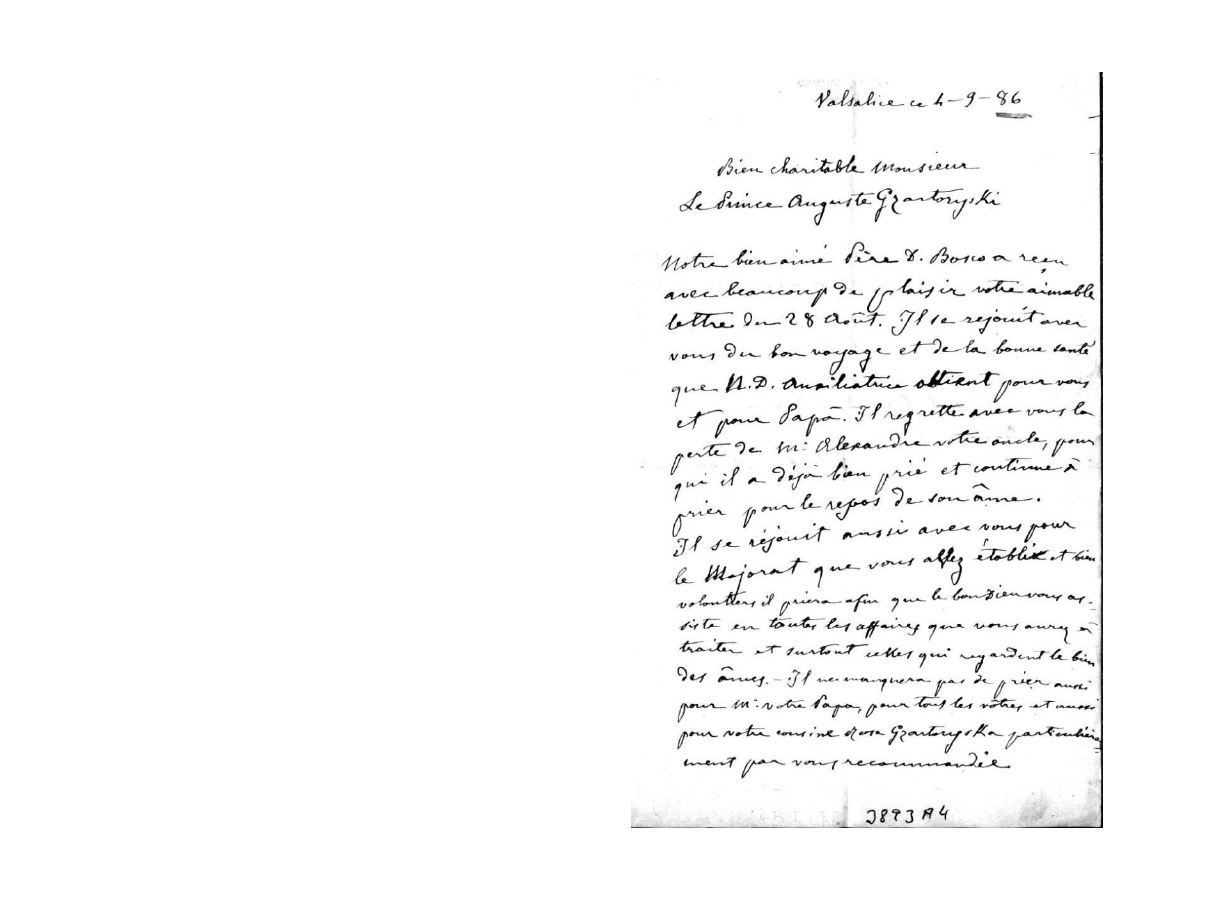 Valsalice ce 4-9-86
Bien charitable Monsieur
Le Prince Auguste Gzartoryski
Notre bien aimé Père D. Bosco a reçu
avec beaucoup de plaisir votre aimable
lettre du 28 Août. Il se rejouit avec
vous du bon voyage et de la bonne santé
que N.D. Auxiliatrice obtient pour vous
et pour Papà. Il regrette avec vous la
perte de Mr Alexandre votre oncle, pour
qui il a déjà bien prié et continue à
prier pour le repos de son âme.
Il se réjouit aussi avec vous pour
le Majorat que vous allez établir et bien
volontiers il priera afin que le bon Dieu vous as-
siste en toutes les affaires que vous aurez à
traiter et surtout celles qui regardent le bien
des âmes. - Il ne manquera pas de prier aussi
pour Mr votre Papa, pour tous les vôtres et aussi
pour votre cousine Gzartoryska particulière-
ment par vous recommandée
3893 A4